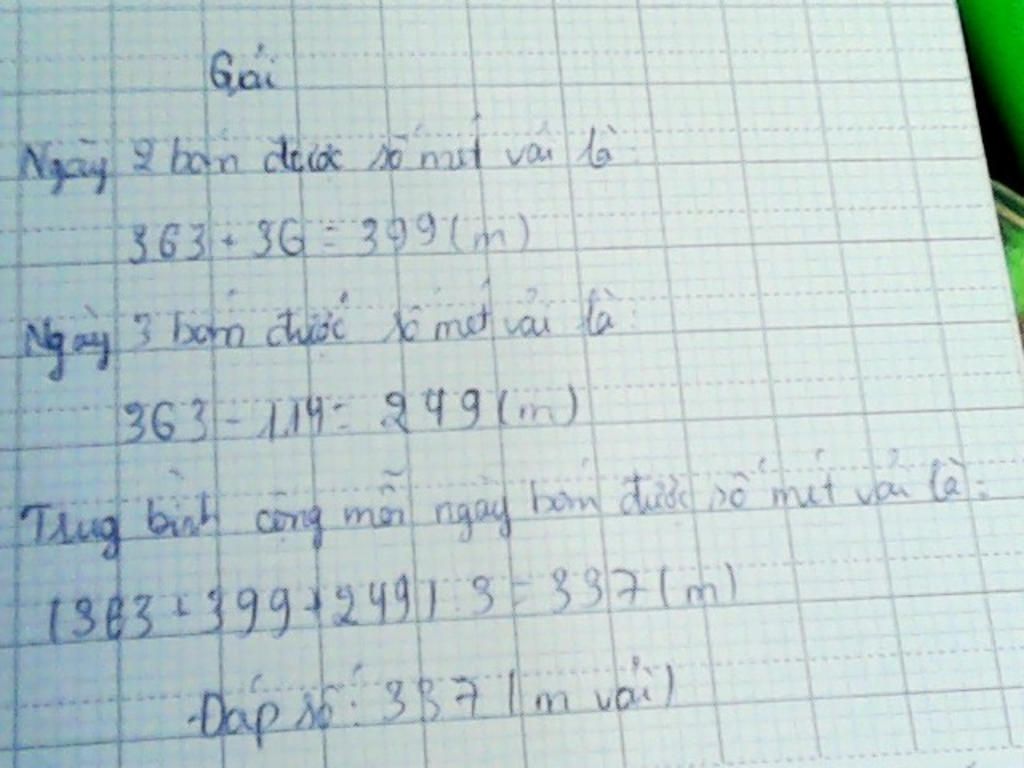 Giải
Ngày 2 bán được số mét vải là:
363 + 36 = 399 (m)
Ngày 3 bán được số mét vải là:
363 - 114 = 249 (m)
Trug bình cộng mỗi ngày bán được số mét vải là:
(363 + 399 + 249) : 3 = 337 (m)
Đáp số: 337 (m vải)